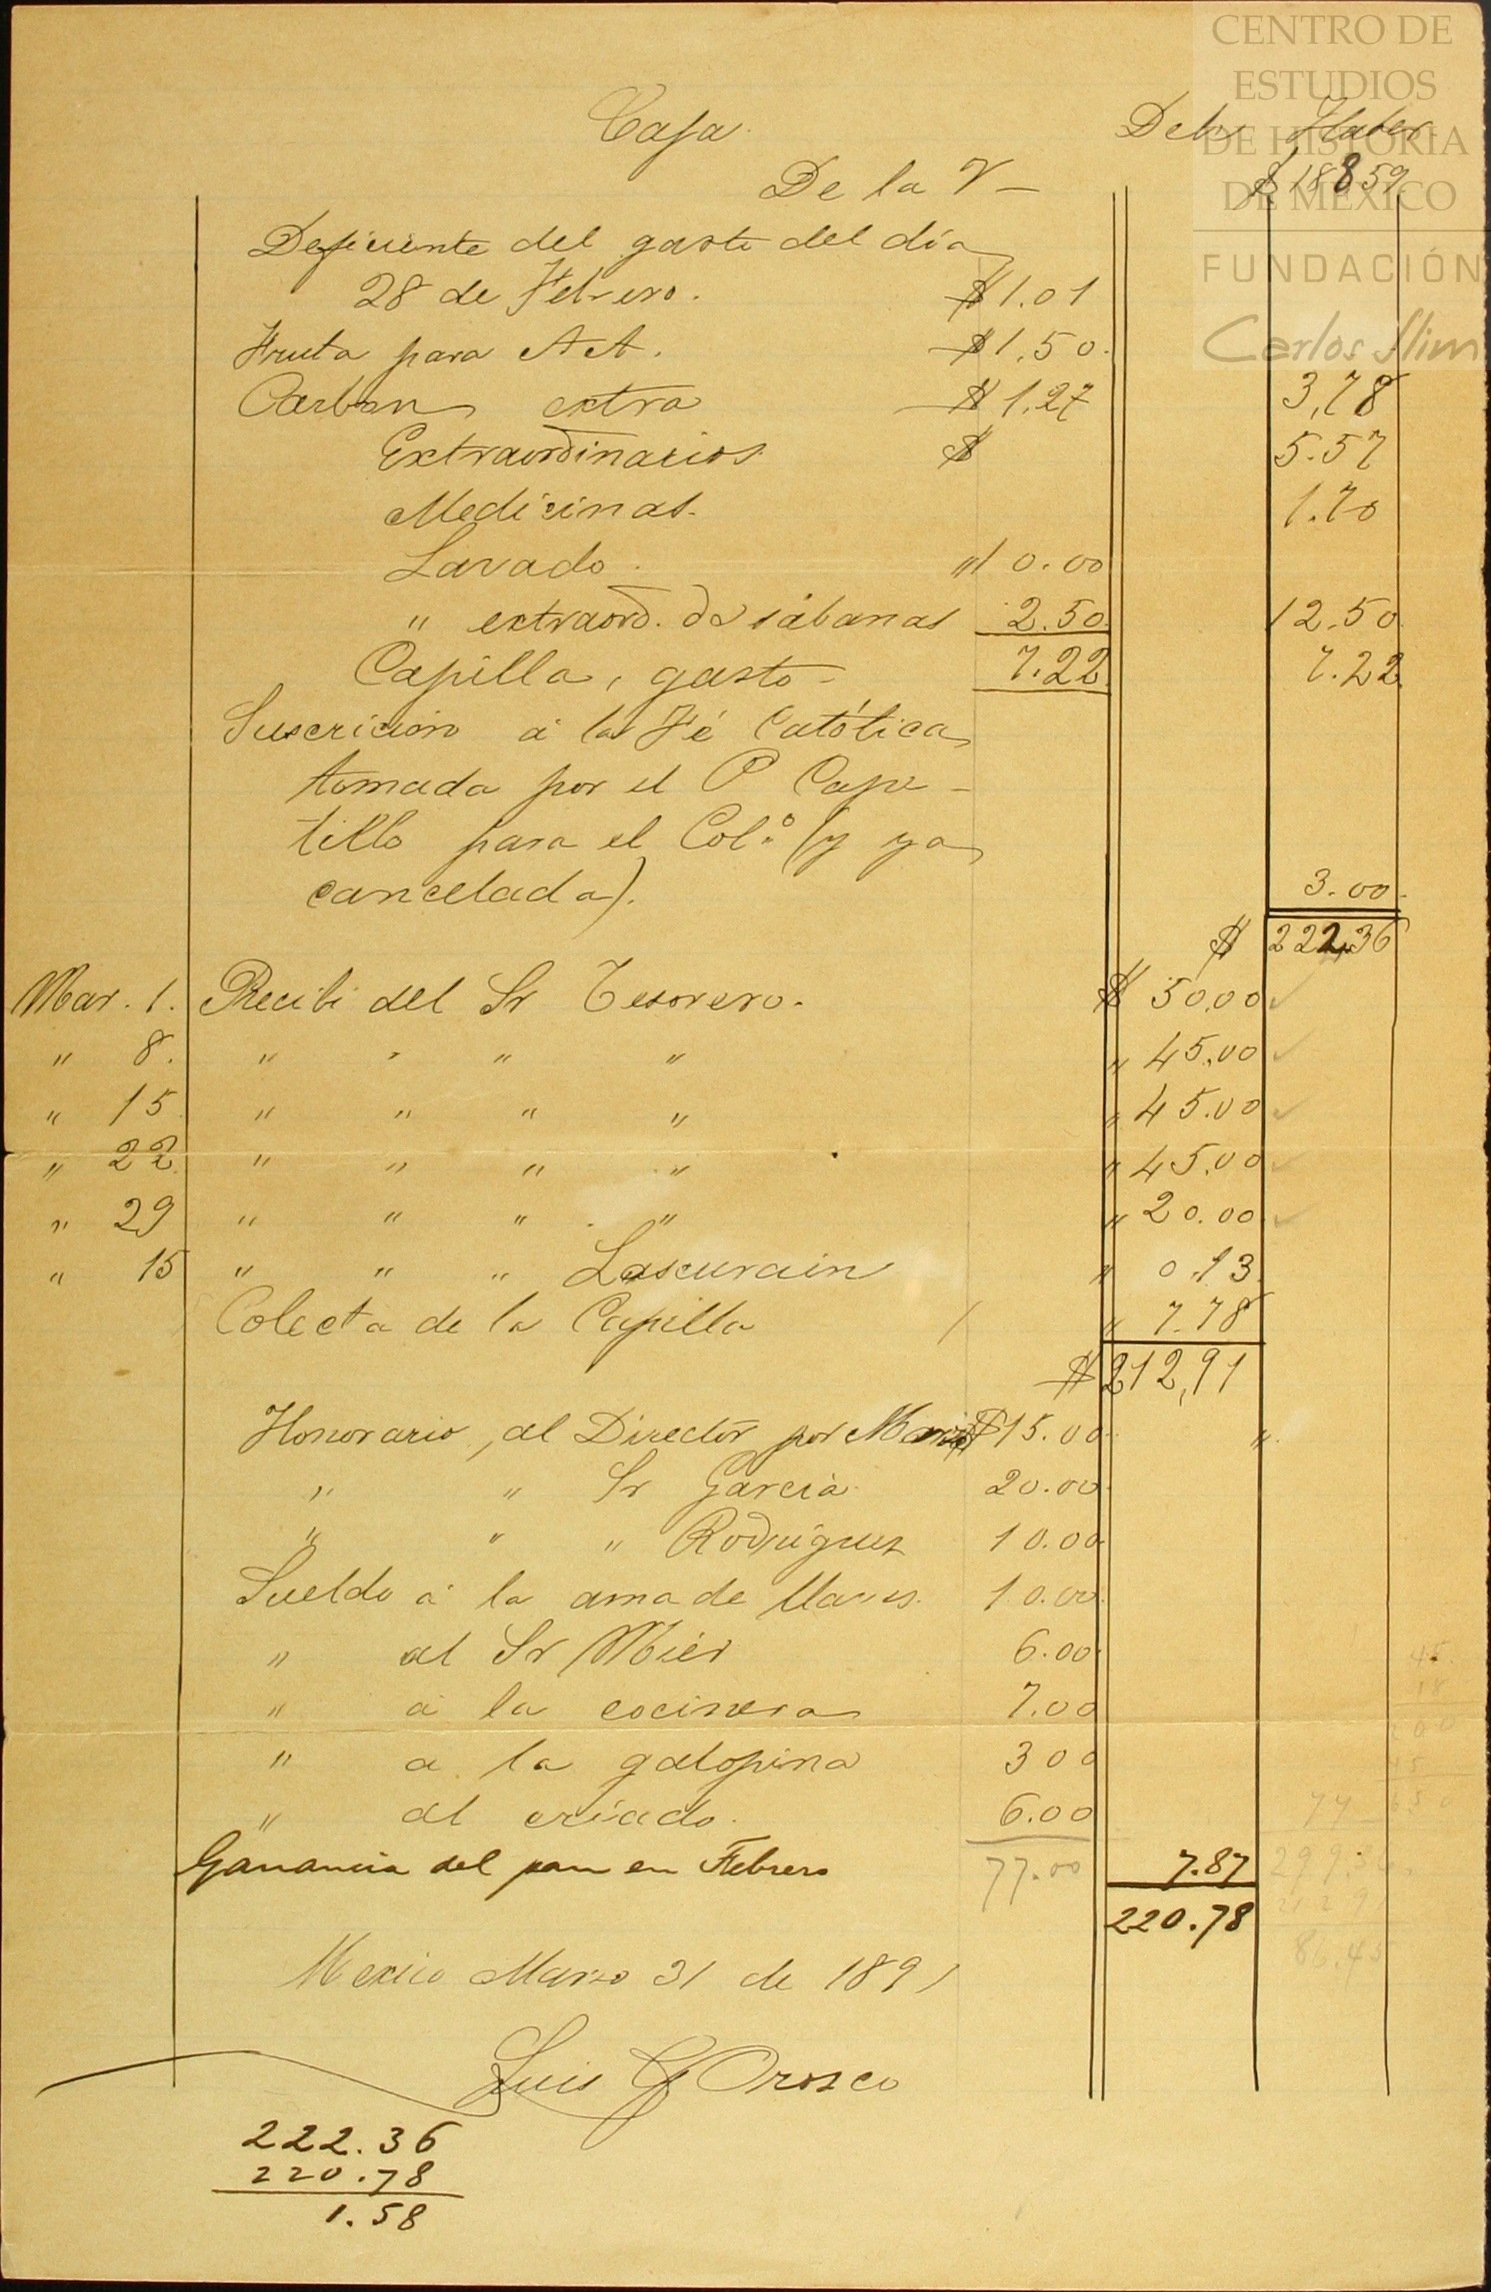 CENTRO DE
ESTUDIOS
DE HISTORIA
DE MÉXICO
FUNDACIÓN
Carlos Slim
Casa. Debe Haber
De la V— $188.59
Deficiente del gasto del día
28 de Febrero. $1.01
Fruta para AA. $1.50.
Carbon extra $1.27 3,78
Extraordinarios $ 5.57
Medicinas. 1.70
Lavado. " 10.00
" extraord. de sábanas 2.50 12.50
Capilla, gasto— 7.22 7.22
Suscricion á la Fé Católica
tomada por el P Cape-
tillo para el Col.º (y ya
cancelada). 3.00
$ 222,36
Mar. 1. Recibi del Sr Tesorero. $ 50.00
" 8. " " " " " 45.00
" 15 " " " " " 45.00
" 22 " " " " " 45.00
" 29 " " " " " 20.00
" 15 " " " Lascurain " 0.13
Colecta de la Capilla " 7.78
$212,91
Honorario, al Director por Marzo $15.00 "
" " Sr Garcia 20.00
" " " Rodriguez 10.00
Sueldo á la ama de llaves. 10.00
" al Sr Mier 6.00
" á la cocinera 7.00
" a la galopina 300
" al criado. 6.00
Ganancia del pan en Febrero 7.87
77.00
220.78
77
299.36
212 91
86.45
Mexico Marzo 31 de 1891
Luis G Orozco
222.36
220.78
1.58